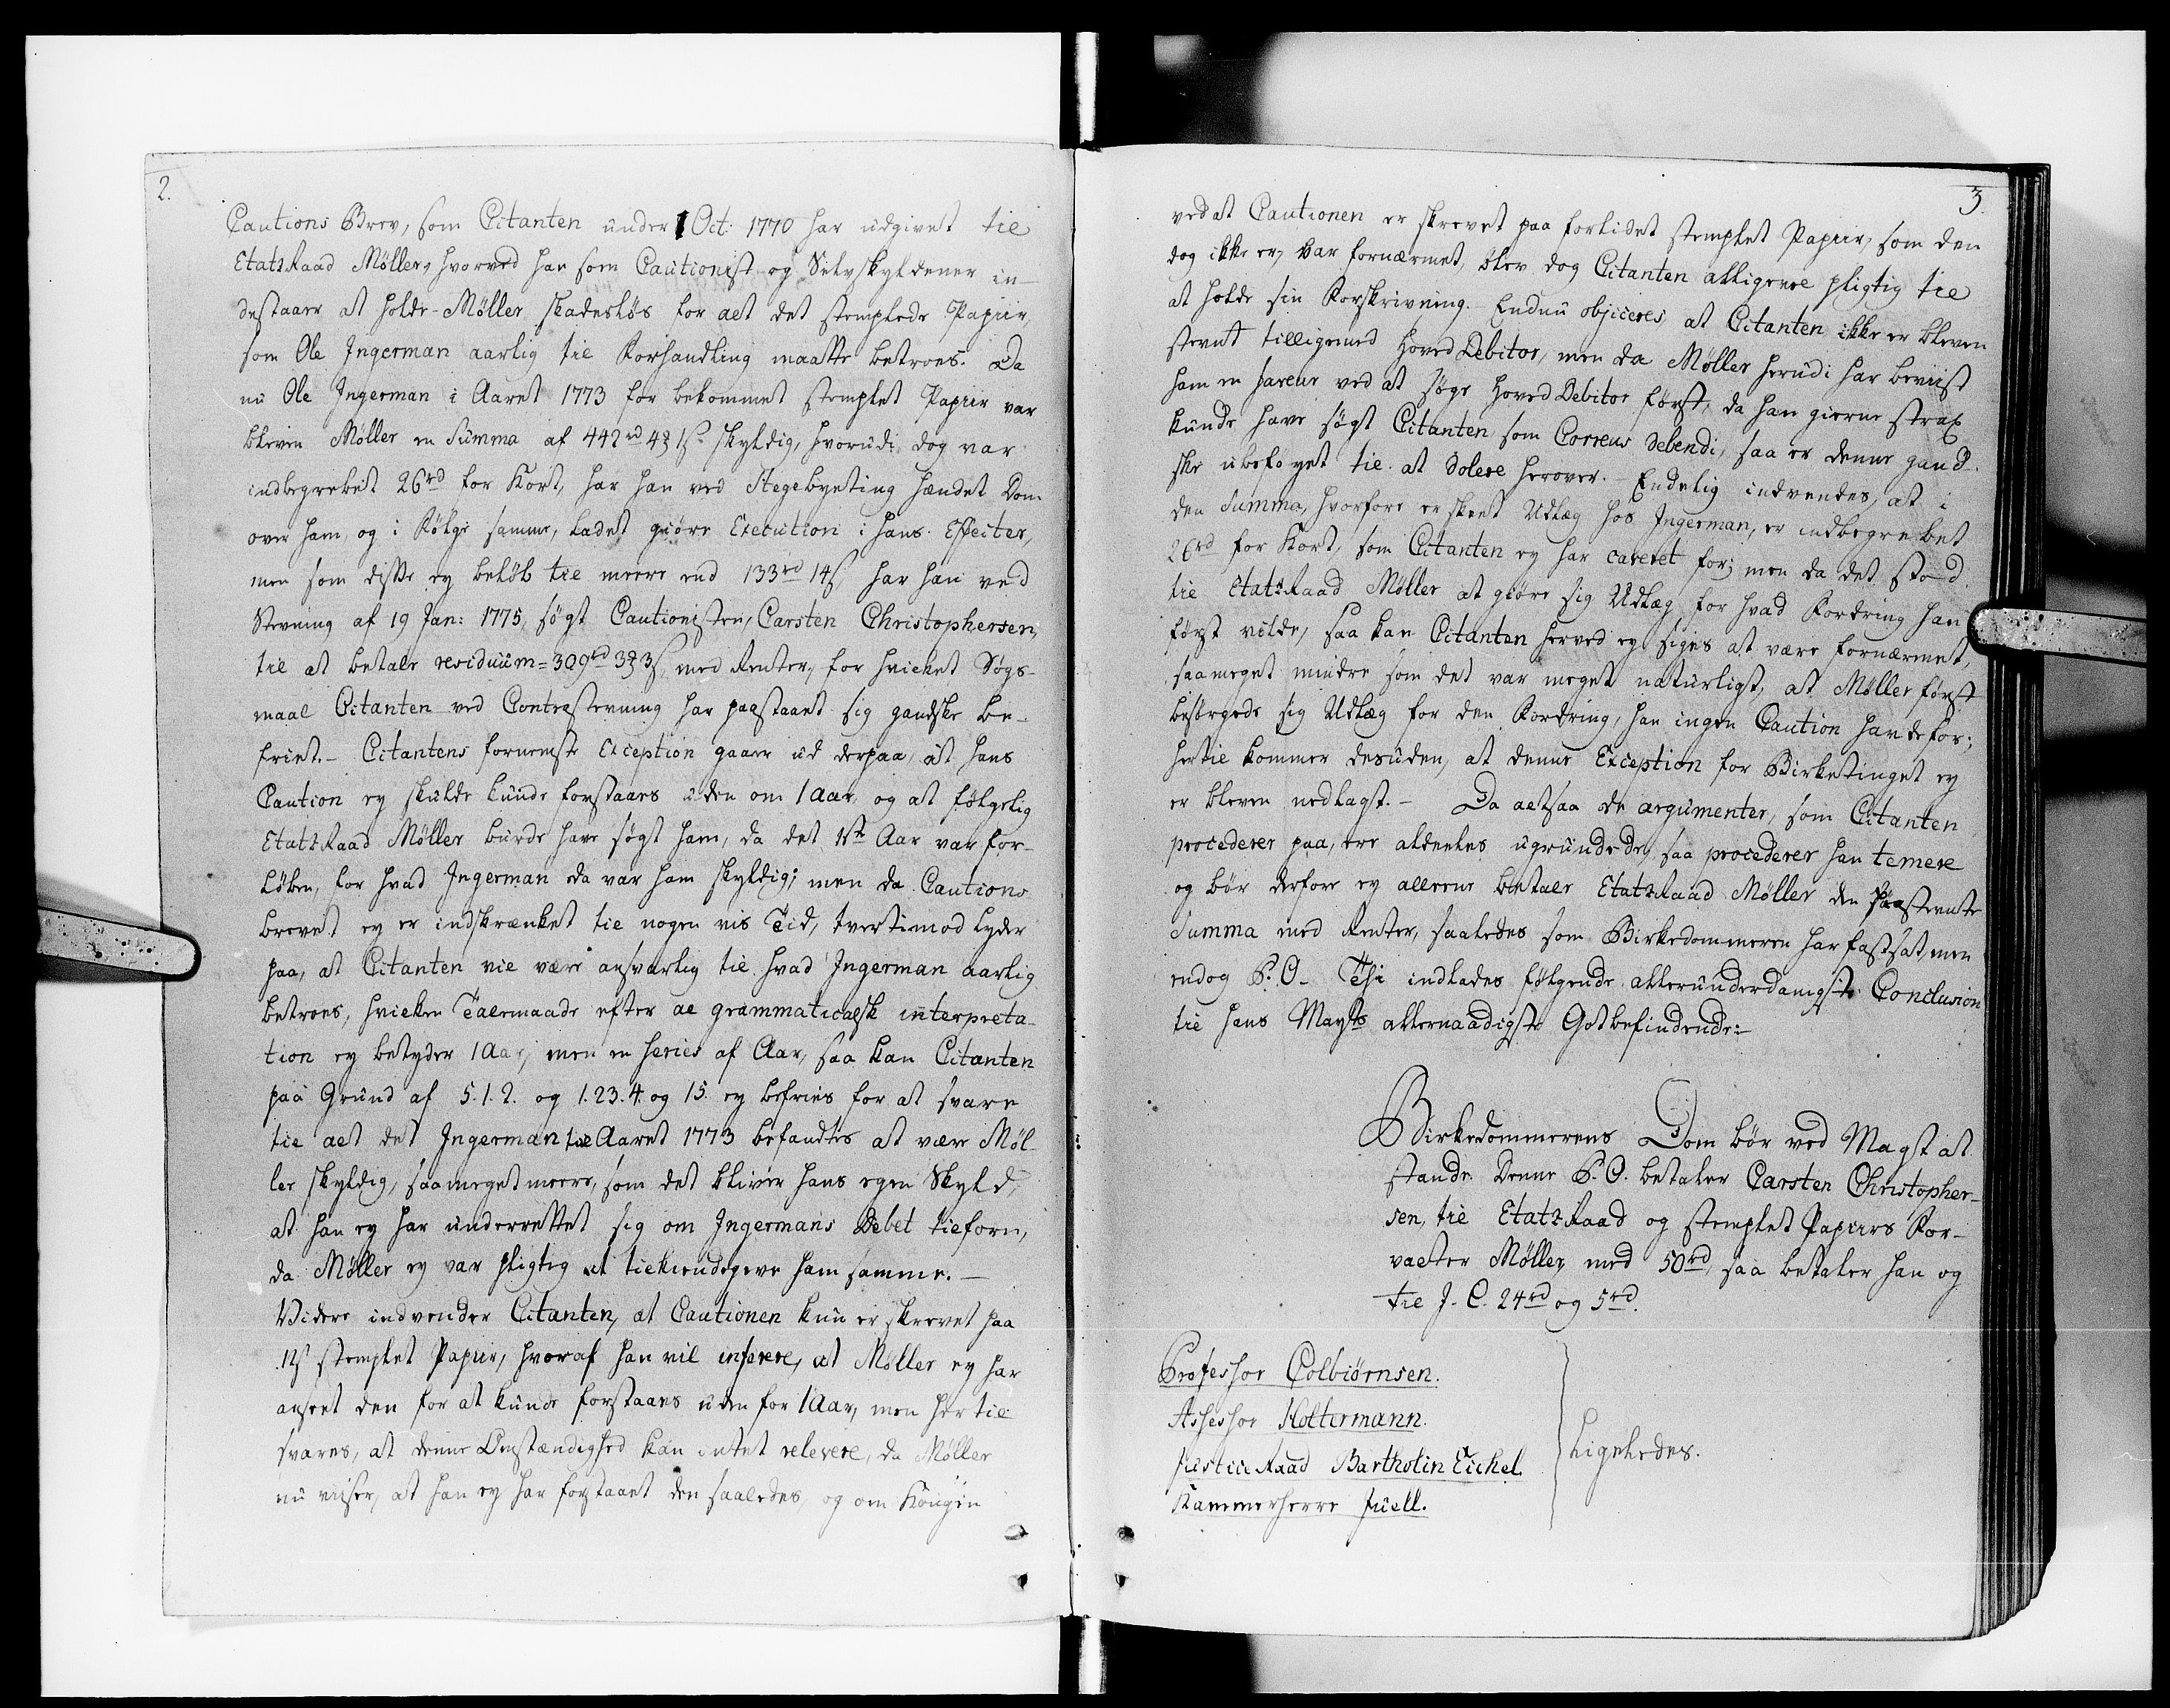 2.
Cautions Brev, som Citanten under 1 Oct: 1770 har udgivet til
EtatzRaad Møller, hvorved han som Cautionist og Selvskyldener in-
destaaer at holde Møller skadesløs for alt det stemplede Papiir,
som Ole Ingerman aarlig til Forhandling maatte betroes. Da
nu Ole Ingerman i Aaret 1773 for bekommet stemplet Papiir var
bleven Møller en Summa af 442rd 4§ 1s. skyldig, hvorudi dog var
indbegrebet 26rd for Kort, har han ved Stegebyeting hændet Dom
over ham, og i Følge samme, ladet giøre Execution i hans Effecter,
men som disse ey beløb til meere end 133rd 14s, har han ved
Stevning af 19 Jan: 1775, søgt Cautionisten, Carsten Christophersen,
til at betale residuum = 309rd 3§ 3s, med Renter, for hvilket Søgs-
maal Citanten ved Contrastevning har paastaaet sig gandske be-
friet. - Citantens fornemste Exception gaaer ud derpaa, at hans
Caution ey skulde kunde forstaaes uden om 1 Aar, og at følgelig
EtatzRaad Møller burde have søgt ham, da det 1ste Aar var for-
løben, for hvad Ingerman da var ham skyldig; men da Cautions
brevet ey er indskrænket til nogen vis Tid, tvertimod lyder
paa, at Citanten vil være ansvarlig til hvad Ingerman aarlig
betroes, hvilken Talemaade efter al grammaticalsk interpreta-
tion ey betyder 1 Aar, men en series af Aar, saa kan Citanten
paa Grund af 5.1.2. og 1.23.4. og 15. ey befries for at svare
til alt det Ingerman til Aaret 1773 befandtes at være Møl-
ler skyldig, saameget meere, som det bliver hans egen Skyld,
at han ey har underrettet sig om Ingermans Debet tilforn,
da Møller ey var pligtig at tilkiendegive ham samme. -
Videre indvender Citanten, at Cautionen kun er skrevet paa
12s stemplet Papiir, hvoraf han vil inferere, at Møller ey har
anseet den for at kunde forstaaes uden for 1 Aar, men hertil
svares, at denne Omstændighed kan intet relevere, da Møller
nu viiser, at han ey har forstaaet den saaledes, og om Kongen
3.
ved at Cautionen er skrevet paa forlidet stemplet Papiir, som den
dog ikke er, var fornærmet, blev dog Citanten alligevel pligtig til
at holde sin Forskrivning. - Endnu objiceres, at Citanten ikke er bleven
stevnt tilligemed Hoved Debitor, men da Møller herudi har beviist
ham en faveur ved at søge Hoved Debitor først, da han gierne strax
kunde have søgt Citanten som Correus debendi, saa er denne gand-
ske ubeføyet til at dolere herover. - Endelig indvendes, at i
den Summa, hvorfore er skeet Udlæg hos Ingerman, er indbegrebet
26rd for Kort, som Citanten ey har caveret for; men da det stod
til EtatzRaad Møller at giøre sig Udlæg for hvad Fordring han
først vilde, saa kan Citanten herved ey siges at være fornærmet,
saameget mindre som det var meget naturligt, at Møller først
besørgede sig Udlæg for den Fordring, han ingen Caution havde for;
hertil kommer desuden, at denne Exception for Birketinget ey
er bleven nedlagt. - Da altsaa de argumenter, som Citanten
procederer paa, ere aldeeles ugrundede, saa procederer han temere
og bør derfore ey alleene betale EtatzRaad Møller den paastevnte
Summa med Renter, saaledes som Birkedommeren har fastsat, men
endog P. O. - Thi indlades følgende allerunderdanigste Conclusion
til Hans Mayts allernaadigste Godtbefindende:
Birkedommerens Dom bør ved Magt at
stande. Denne P. O. betaler Carsten Christopher-
sen, til EtatzRaad og stemplet Papiirs For-
valter Møller, med 50rd, saa betaler han og
til J. C. 24rd og 5rd.
Professor Colbiørnsen.
Assessor Koltermann.
JustiiceRaad Bartholin Eichel.
Kammerherre Juell.
Ligeledes.